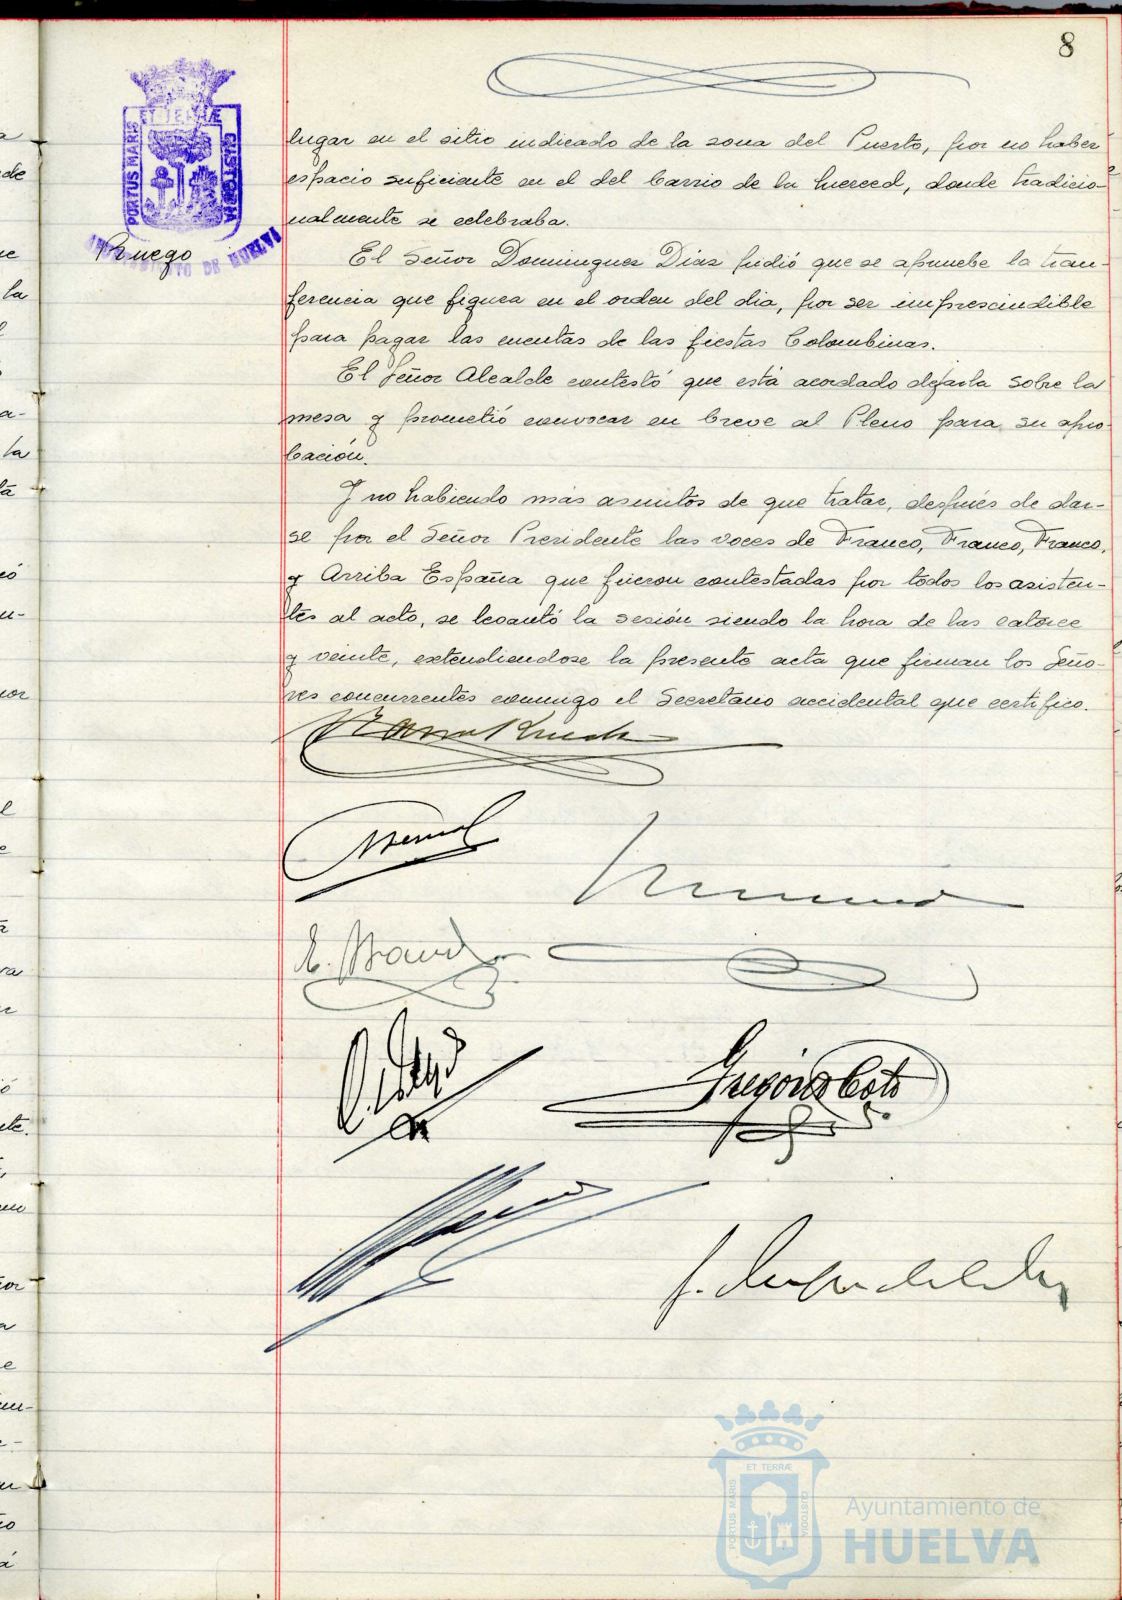 8
ET TERRÆ
PORTUS MARIS
CUSTODIA
AYUNTAMIENTO DE HUELVA
Ruego
lugar en el sitio indicado de la zona del Puerto, por no haber
espacio suficiente en el del barrio de la Merced, donde tradicio-
nalmente se celebraba.
El Señor Dominguez Diaz pidió que se apruebe la tran-
ferencia que figura en el orden del dia, por ser imprescindible
para pagar las cuentas de las fiestas Colombinas.
El Señor Alcalde contestó que está acordado dejarla sobre la
mesa y prometió convocar en breve al Pleno para su apro-
bación.
Y no habiendo más asuntos de que tratar, después de dar-
se por el Señor Presidente las voces de Franco, Franco, Franco,
y Arriba España que fueron contestadas por todos los asisten-
tes al acto, se levantó la sesión siendo la hora de las catorce
y veinte, extendiendose la presente acta que firman los Seño-
res concurrentes conmigo el Secretario accidental que certifico.
Gregorio Coto
ET TERRÆ
PORTUS MARIS
CUSTODIA
Ayuntamiento de
HUELVA